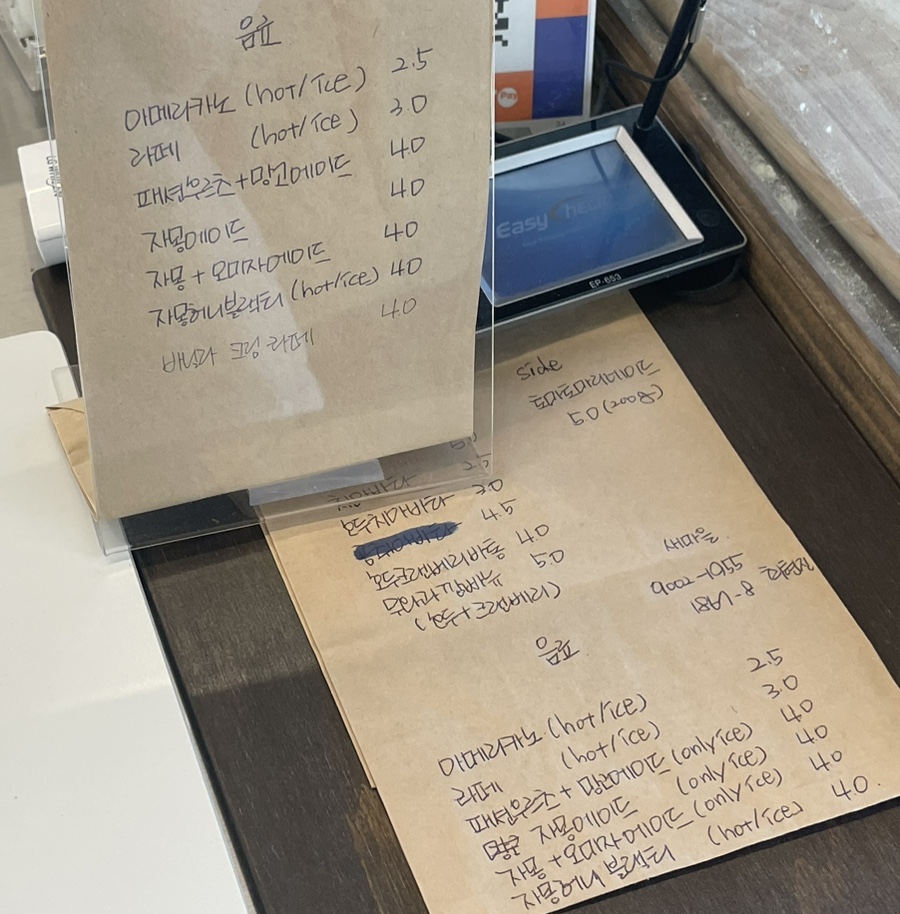 음료
아메리카노 (hot/ice) 2.5
라떼 (hot/ice) 3.0
패션후르츠+망고에이드 4.0
자몽에이드 4.0
자몽 + 오미자에이드 4.0
자몽허니블랙티 (hot/ice) 4.0
바닐라 크림 라떼 4.0
Pay
EasyCheck
EP-653
side
토마토마리네이드
5.0 (200g)
5.0
호두치아바타 3.0
4.5
호두크랜베리바통 4.0
무화과깜빠뉴 5.0
(호두+크랜베리)
새마을
9002-1055
음료
아메리카노 (hot/ice) 2.5
라떼 (hot/ice) 3.0
패션후르츠 + 망고에이드 (only ice) 4.0
자몽에이드 (only ice) 4.0
자몽 + 오미자에이드 (only ice) 4.0
자몽허니 블랙티 (hot/ice) 4.0